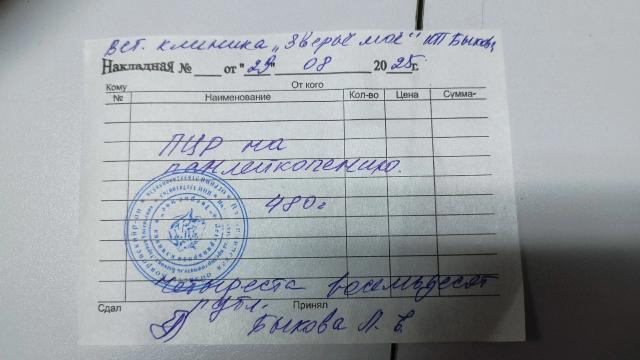 Вет. клиника „Зверьё моё" ИП Быкова
Накладная № от "29" 08 2025г.
Кому От кого
№ Наименование Кол-во Цена Сумма
ПЦР на
панлейкопению.
480=
Четыреста восемьдесят
рубл.
Сдал Принял
Быкова Л. В.